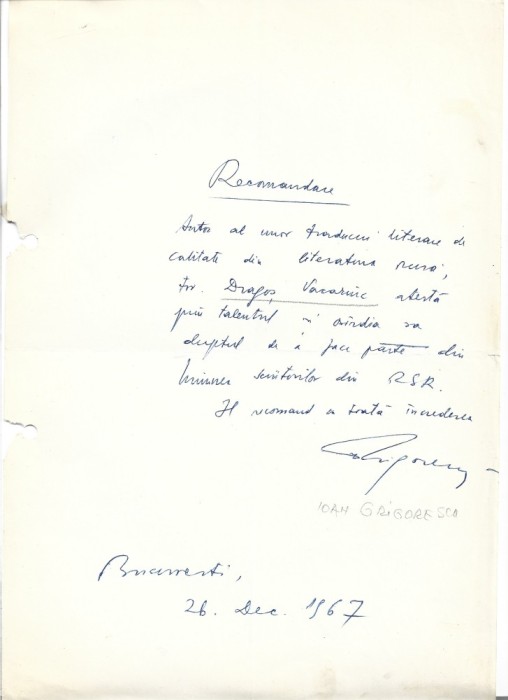 Recomandare
Autor al unor traduceri literare de
calitate din literatura rusă,
tov. Dragoș Vacariuc atestă
prin talentul și râvna sa
dreptul de a face parte din
Uniunea Scriitorilor din RSR.
Îl recomand cu toată încrederea
Grigorescu
IOAN GRIGORESCU
București,
26. Dec. 1967